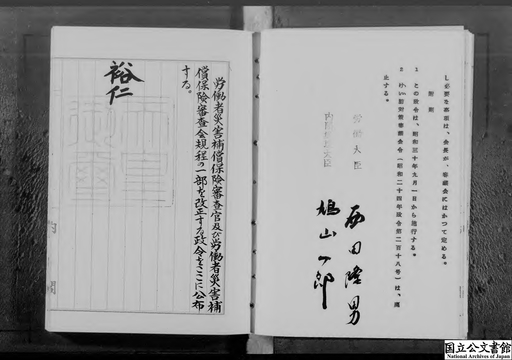 し必要な事項は、会長が、審議会にはかつて定める。
附則
1 この政令は、昭和三十年九月一日から施行する。
2 けい肺対策審議会令（昭和二十四年政令第二百十八号）は、廃
止する。
労働大臣
内閣総理大臣
西田隆男
鳩山一郎
労働者災害補償保険審査官及び労働者災害補
償保険審査会規程の一部を改正する政令をここに公布
する。
裕仁
天皇御璽
国立公文書館
National Archives of Japan